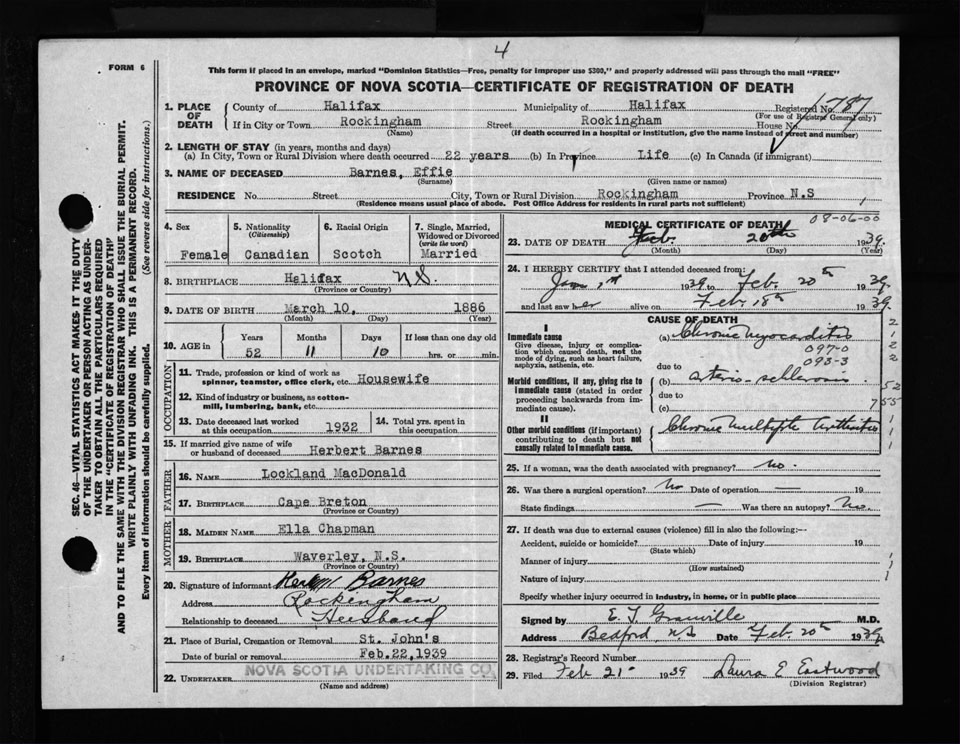 4
FORM 6
This form if placed in an envelope, marked "Dominion Statistics—Free, penalty for improper use $300," and properly addressed will pass through the mail "FREE"
PROVINCE OF NOVA SCOTIA—CERTIFICATE OF REGISTRATION OF DEATH
SEC. 46—VITAL STATISTICS ACT MAKES IT THE DUTY
OF THE UNDERTAKER OR PERSON ACTING AS UNDER-
TAKER TO OBTAIN ALL THE PARTICULARS REQUIRED
IN THE "CERTIFICATE OF REGISTRATION OF DEATH"
AND TO FILE THE SAME WITH THE DIVISION REGISTRAR WHO SHALL ISSUE THE BURIAL PERMIT.
WRITE PLAINLY WITH UNFADING INK. THIS IS A PERMANENT RECORD.
Every item of information should be carefully supplied. (See reverse side for instructions.)
1. PLACE OF DEATH County of Halifax Municipality of Halifax Registered No. 1787
(For use of Registrar General only)
If in City or Town Rockingham Street Rockingham House No.
(Name) (If death occurred in a hospital or institution, give the name instead of street and number)
2. LENGTH OF STAY (in years, months and days)
(a) In City, Town or Rural Division where death occurred 22 years (b) In Prov Life (c) In Canada (if immigrant)
3. NAME OF DECEASED Barnes, Effie
(Surname) (Given name or names)
RESIDENCE No. Street City, Town or Rural Division Rockingham Province N.S
(Residence means usual place of abode. Post Office Address for residents in rural parts not sufficient)
4. Sex 5. Nationality (Citizenship) 6. Racial Origin 7. Single, Married, Widowed or Divorced (write the word)
Female Canadian Scotch Married
8. BIRTHPLACE Halifax N.S.
(Province or Country)
9. DATE OF BIRTH March 10, 1886
(Month) (Day) (Year)
10. AGE in Years Months Days If less than one day old
52 11 10 hrs. or min.
OCCUPATION
11. Trade, profession or kind of work as
spinner, teamster, office clerk, etc. Housewife
12. Kind of industry or business, as cotton-
mill, lumbering, bank, etc.
13. Date deceased last worked
at this occupation 1932
14. Total yrs. spent in
this occupation
15. If married give name of wife
or husband of deceased Herbert Barnes
FATHER
16. NAME Lockland MacDonald
17. BIRTHPLACE Cape Breton
(Province or Country)
MOTHER
18. MAIDEN NAME Ella Chapman
19. BIRTHPLACE Waverley, N.S.
(Province or Country)
20. Signature of informant Barnes
Address Rockingham
Relationship to deceased Husband
21. Place of Burial, Cremation or Removal St. John's
Date of burial or removal Feb.22,1939
22. UNDERTAKER NOVA SCOTIA UNDERTAKING CO.
(Name and address)
MEDICAL CERTIFICATE OF DEATH
08-06-00
23. DATE OF DEATH Feb. 20th 1939.
(Month) (Day) (Year)
24. I HEREBY CERTIFY that I attended deceased from:
1939 to Feb. 20th 1939.
and last saw her alive on Feb 18th 1939.
CAUSE OF DEATH
I
Immediate cause
Give disease, injury or complica-
tion which caused death, not the
mode of dying, such as heart failure,
asphyxia, asthenia, etc.
(a) Chronic Myocarditis
097-0
093-3
due to
Morbid conditions, if any, giving rise to
immediate cause (stated in order
proceeding backwards from im-
mediate cause).
(b) arterio-sclerosis
due to
(c)
52
755
II
Other morbid conditions (if important)
contributing to death but not
causally related to immediate cause.
Chronic multiple arthritis
25. If a woman, was the death associated with pregnancy? no.
26. Was there a surgical operation? No Date of operation — 19
State findings — Was there an autopsy? No.
27. If death was due to external causes (violence) fill in also the following:—
Accident, suicide or homicide? Date of injury 19
(State which)
Manner of injury
(How sustained)
Nature of injury
Specify whether injury occurred in industry, in home, or in public place
Signed by E. T. Granville M.D.
Address Bedford N.S Date Feb. 20th 1939
28. Registrar's Record Number
29. Filed Feb 21st 1939 Laura E Eastwood
(Division Registrar)